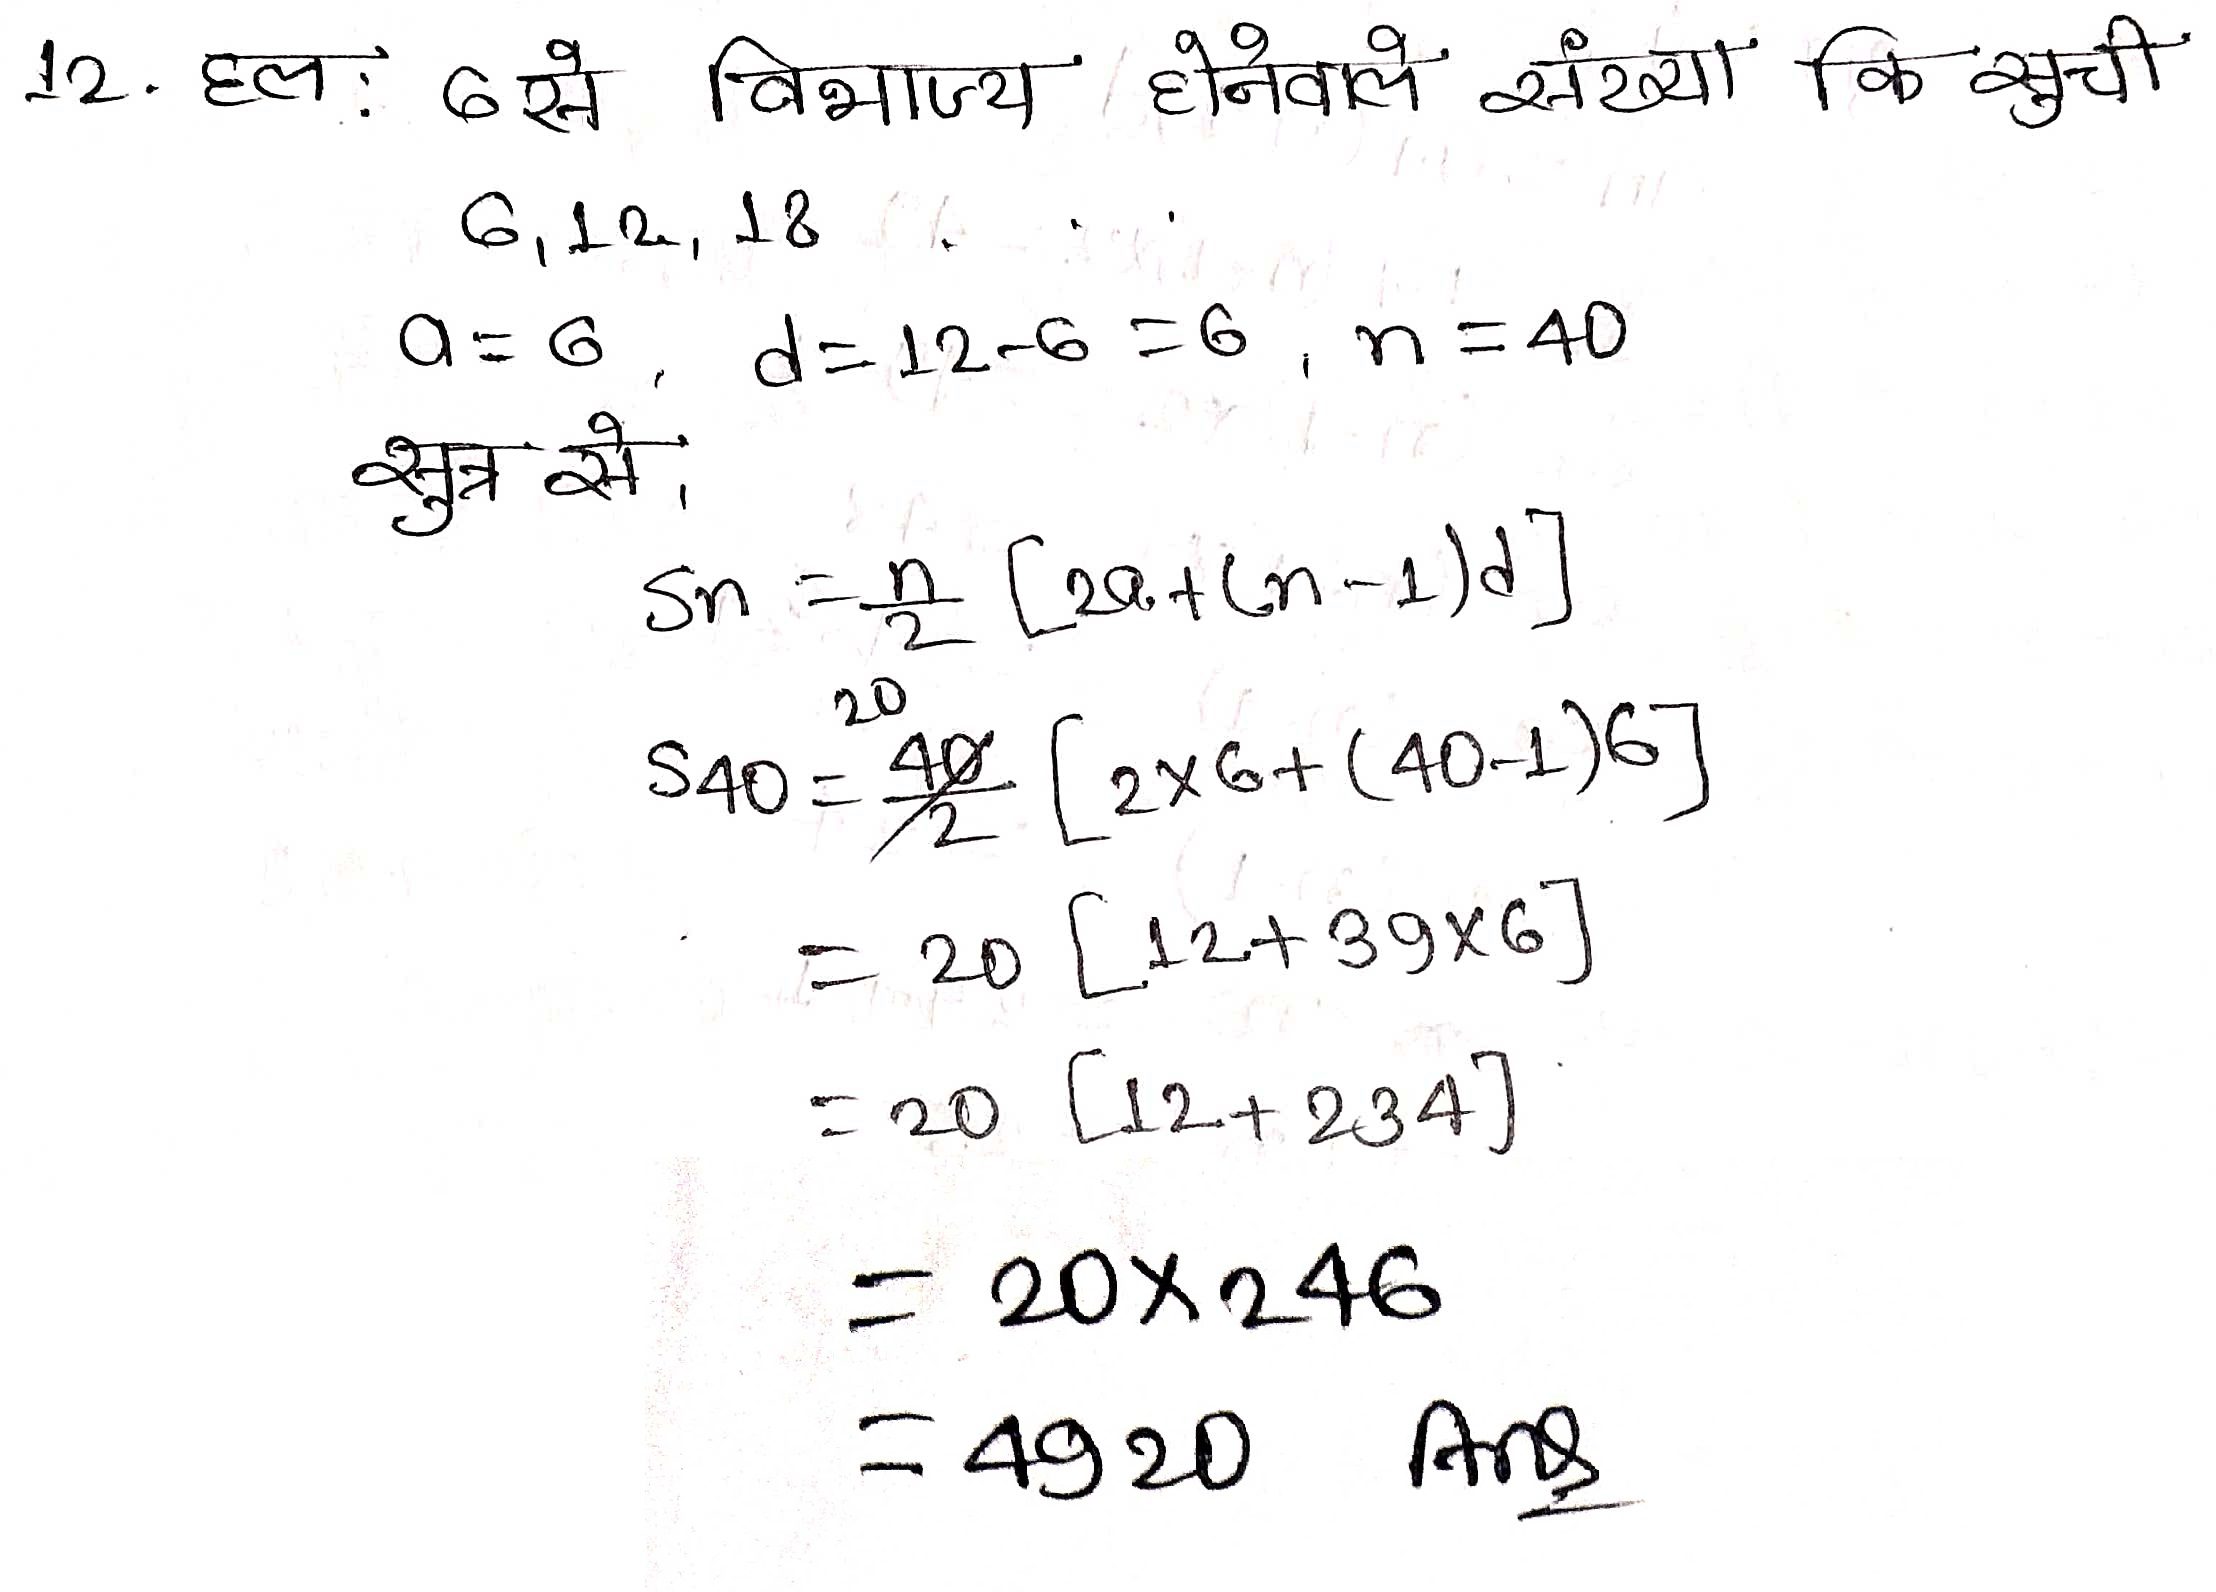 12. हल: 6 से विभाज्य होनेवाले संख्या कि सुची
6, 12, 18 . . .
a = 6, d = 12-6 = 6, n = 40
सुत्र से,
Sn = n/2 [2a+(n-1)d]
20
S40 = 40/2 [2×6+(40-1)6]
= 20 [12+39×6]
= 20 [12+234]
= 20×246
= 4920 Ans